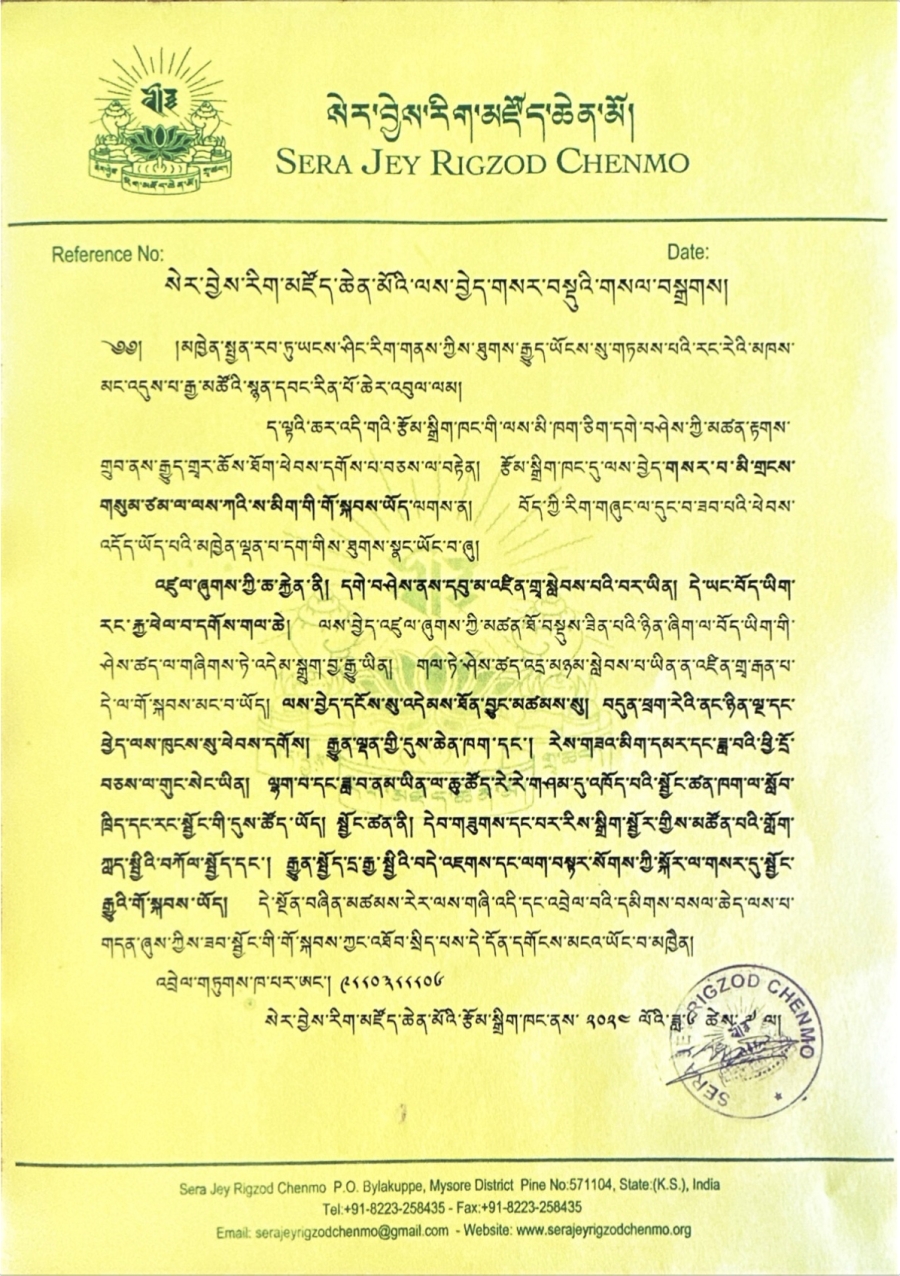 སེར་བྱེས་རིག་མཛོད་ཆེན་མོ།
SERA JEY RIGZOD CHENMO
Reference No:
Date:
སེར་བྱེས་རིག་མཛོད་ཆེན་མོའི་ལས་བྱེད་གསར་བསྡུའི་གསལ་བསྒྲགས།
༄༅། །མཁྱེན་སྤྱན་རབ་ཏུ་ཡངས་ཤིང་རིག་གནས་ཀྱིས་ཐུགས་རྒྱུད་ཡོངས་སུ་གཏམས་པའི་རང་རེའི་མཁས་
མང་འདུས་པ་རྒྱ་མཚོའི་སྙན་དབང་རིན་པོ་ཆེར་འབུལ་ལམ།
ད་ལྟའི་ཆར་འདི་གའི་རྩོམ་སྒྲིག་ཁང་གི་ལས་མི་ཁག་ཅིག་དགེ་བཤེས་ཀྱི་མཚན་རྟགས་
གྲུབ་ནས་རྒྱུད་གྲྭར་ཆོས་ཐོག་ཕེབས་དགོས་པ་བཅས་ལ་བརྟེན། རྩོམ་སྒྲིག་ཁང་དུ་ལས་བྱེད་གསར་བ་མི་གྲངས་
གསུམ་ཙམ་ལ་ལས་ཀའི་ས་མིག་གི་གོ་སྐབས་ཡོད་ལགས་ན། བོད་ཀྱི་རིག་གཞུང་ལ་དུང་བ་ཟབ་པའི་ཕེབས་
འདོད་ཡོད་པའི་མཁྱེན་ལྡན་པ་དག་གིས་ཐུགས་སྣང་ཡོང་བ་ཞུ།
འཛུལ་ཞུགས་ཀྱི་ཆ་རྐྱེན་ནི། དགེ་བཤེས་ནས་དབུ་མ་འཛིན་གྲྭ་སླེབས་པའི་བར་ཡིན། དེ་ཡང་བོད་ཡིག་
རང་རྐྱ་ཕེལ་བ་དགོས་གལ་ཆེ། ལས་བྱེད་འཛུལ་ཞུགས་ཀྱི་མཚན་ཐོ་བསྡུས་ཟིན་པའི་ཉིན་ཞིག་ལ་བོད་ཡིག་གི་
ཤེས་ཚད་ལ་གཞིགས་ཏེ་འདེམ་སྒྲུག་བྱ་རྒྱུ་ཡིན། གལ་ཏེ་ཤེས་ཚད་འདྲ་མཉམ་སླེབས་པ་ཡིན་ན་འཛིན་གྲྭ་རྒན་པ་
དེ་ལ་གོ་སྐབས་མང་བ་ཡོད། ལས་བྱེད་དངོས་སུ་འདེམས་ཐོན་བྱུང་མཚམས་སུ། བདུན་ཕྲག་རེའི་ནང་ཉིན་ལྔ་དང་
ཕྱེད་ལས་ཁུངས་སུ་ཕེབས་དགོས། རྒྱུན་ལྡན་གྱི་དུས་ཆེན་ཁག་དང་། རེས་གཟའ་མིག་དམར་དང་ཟླ་བའི་ཕྱི་དྲོ་
བཅས་ལ་གུང་སེང་ཡིན། ལྷག་པ་དང་ཟླ་བ་ནམ་ཡིན་ལ་ཆུ་ཚོད་རེ་རེ་གཤམ་དུ་འཁོད་པའི་སྦྱོང་ཚན་ཁག་ལ་སློབ་
ཁྲིད་དང་རང་སྦྱོང་གི་དུས་ཚོད་ཡོད། སྦྱོང་ཚན་ནི། དེབ་གཟུགས་དང་བར་རིས་སྒྲིག་སྦྱོར་གྱིས་མཚོན་པའི་གློག་
ཀླད་སྤྱིའི་བཀོལ་སྤྱོད་དང་། རྒྱུན་སྤྱོད་དྲ་རྒྱ་སྤྱིའི་བདེ་འཇགས་དང་ལག་བསྟར་སོགས་ཀྱི་སྐོར་ལ་གསར་དུ་སྦྱོང་
རྒྱུའི་གོ་སྐབས་ཡོད། དེ་སྔོན་བཞིན་མཚམས་རེར་ལས་གཞི་འདི་དང་འབྲེལ་བའི་དམིགས་བསལ་ཆེད་ལས་པ་
གདན་ཞུས་ཀྱིས་ཟབ་སྦྱོང་གི་གོ་སྐབས་ཀྱང་འཐོབ་སྲིད་པས་དེ་དོན་དགོངས་མངའ་ཡོང་བ་མཁྱེན།
འབྲེལ་གཏུགས་ཁ་པར་ཨང་།
སེར་བྱེས་རིག་མཛོད་ཆེན་མོའི་རྩོམ་སྒྲིག་ཁང་ནས་ ༢༠༢༤ ལོའི་ཟླ་ ༦ ཚེས་ ༧ ལ།
SERA JEY RIGZOD CHENMO
Sera Jey Rigzod Chenmo P.O. Bylakuppe, Mysore District Pine No:571104, State:(K.S.), India
Tel:+91-8223-258435 - Fax:+91-8223-258435
Email: serajeyrigzodchenmo@gmail.com - Website: www.serajeyrigzodchenmo.org